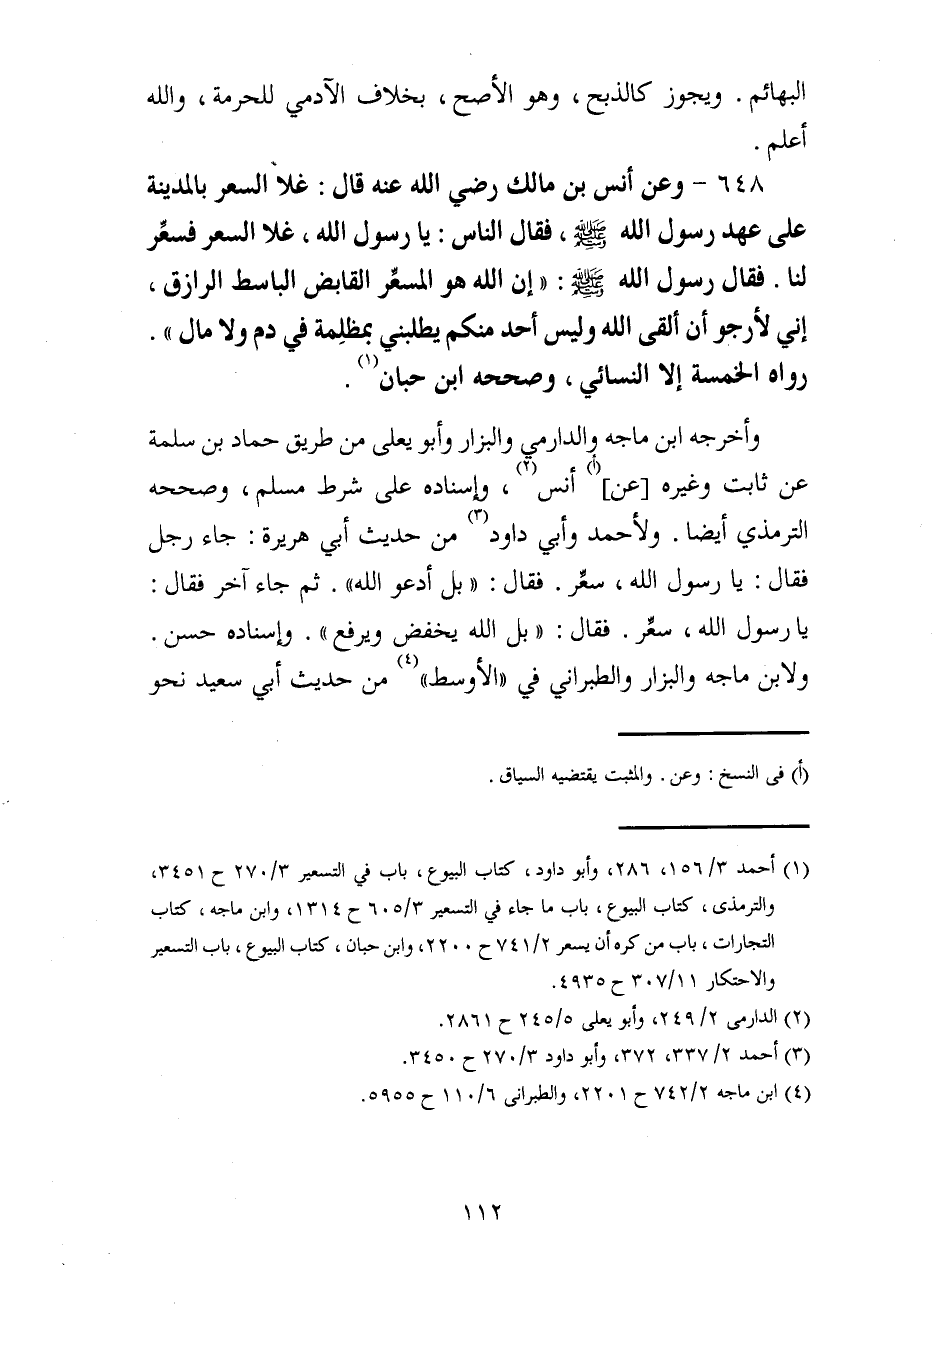 البهائم. ويجوز كالذبح، وهو الأصح، بخلاف الآدمي للحرمة، والله
أعلم.
٦٤٨ - وعن أنس بن مالك رضي الله عنه قال: غلا السعر بالمدينة
على عهد رسول الله ﷺ، فقال الناس: يا رسول الله، غلا السعر فسعِّر
لنا. فقال رسول الله ﷺ: «إن الله هو المسعِّر القابض الباسط الرازق،
إني لأرجو أن ألقى الله وليس أحد منكم يطلبني بمظلِمة في دم ولا مال».
رواه الخمسة إلا النسائي، وصححه ابن حبان(١).
وأخرجه ابن ماجه والدارمي والبزار وأبو يعلى من طريق حماد بن سلمة
عن ثابت وغيره [عن](أ) أنس(٢)، وإسناده على شرط مسلم، وصححه
الترمذي أيضا. ولأحمد وأبي داود(٣) من حديث أبي هريرة: جاء رجل
فقال: يا رسول الله، سعِّر. فقال: «بل أدعو الله». ثم جاء آخر فقال:
يا رسول الله، سعِّر. فقال: «بل الله يخفض ويرفع». وإسناده حسن.
ولابن ماجه والبزار والطبراني في «الأوسط»(٤) من حديث أبي سعيد نحو
(أ) فى النسخ: وعن. والمثبت يقتضيه السياق.
(١) أحمد ٣/ ١٥٦، ٢٨٦، وأبو داود، كتاب البيوع، باب في التسعير ٢٧٠/٣ ح ٣٤٥١،
والترمذى، كتاب البيوع، باب ما جاء في التسعير ٦٠٥/٣ ح ١٣١٤، وابن ماجه، كتاب
التجارات، باب من كره أن يسعر ٧٤١/٢ ح ٢٢٠٠، وابن حبان، كتاب البيوع، باب التسعير
والاحتكار ٣٠٧/١١ ح ٤٩٣٥.
(٢) الدارمى ٢/ ٢٤٩، وأبو يعلى ٢٤٥/٥ ح ٢٨٦١.
(٣) أحمد ٢/ ٣٣٧، ٣٧٢، وأبو داود ٢٧٠/٣ ح ٣٤٥٠.
(٤) ابن ماجه ٧٤٢/٢ ح ٢٢٠١، والطبرانى ١١٠/٦ ح ٥٩٥٥.
١١٢